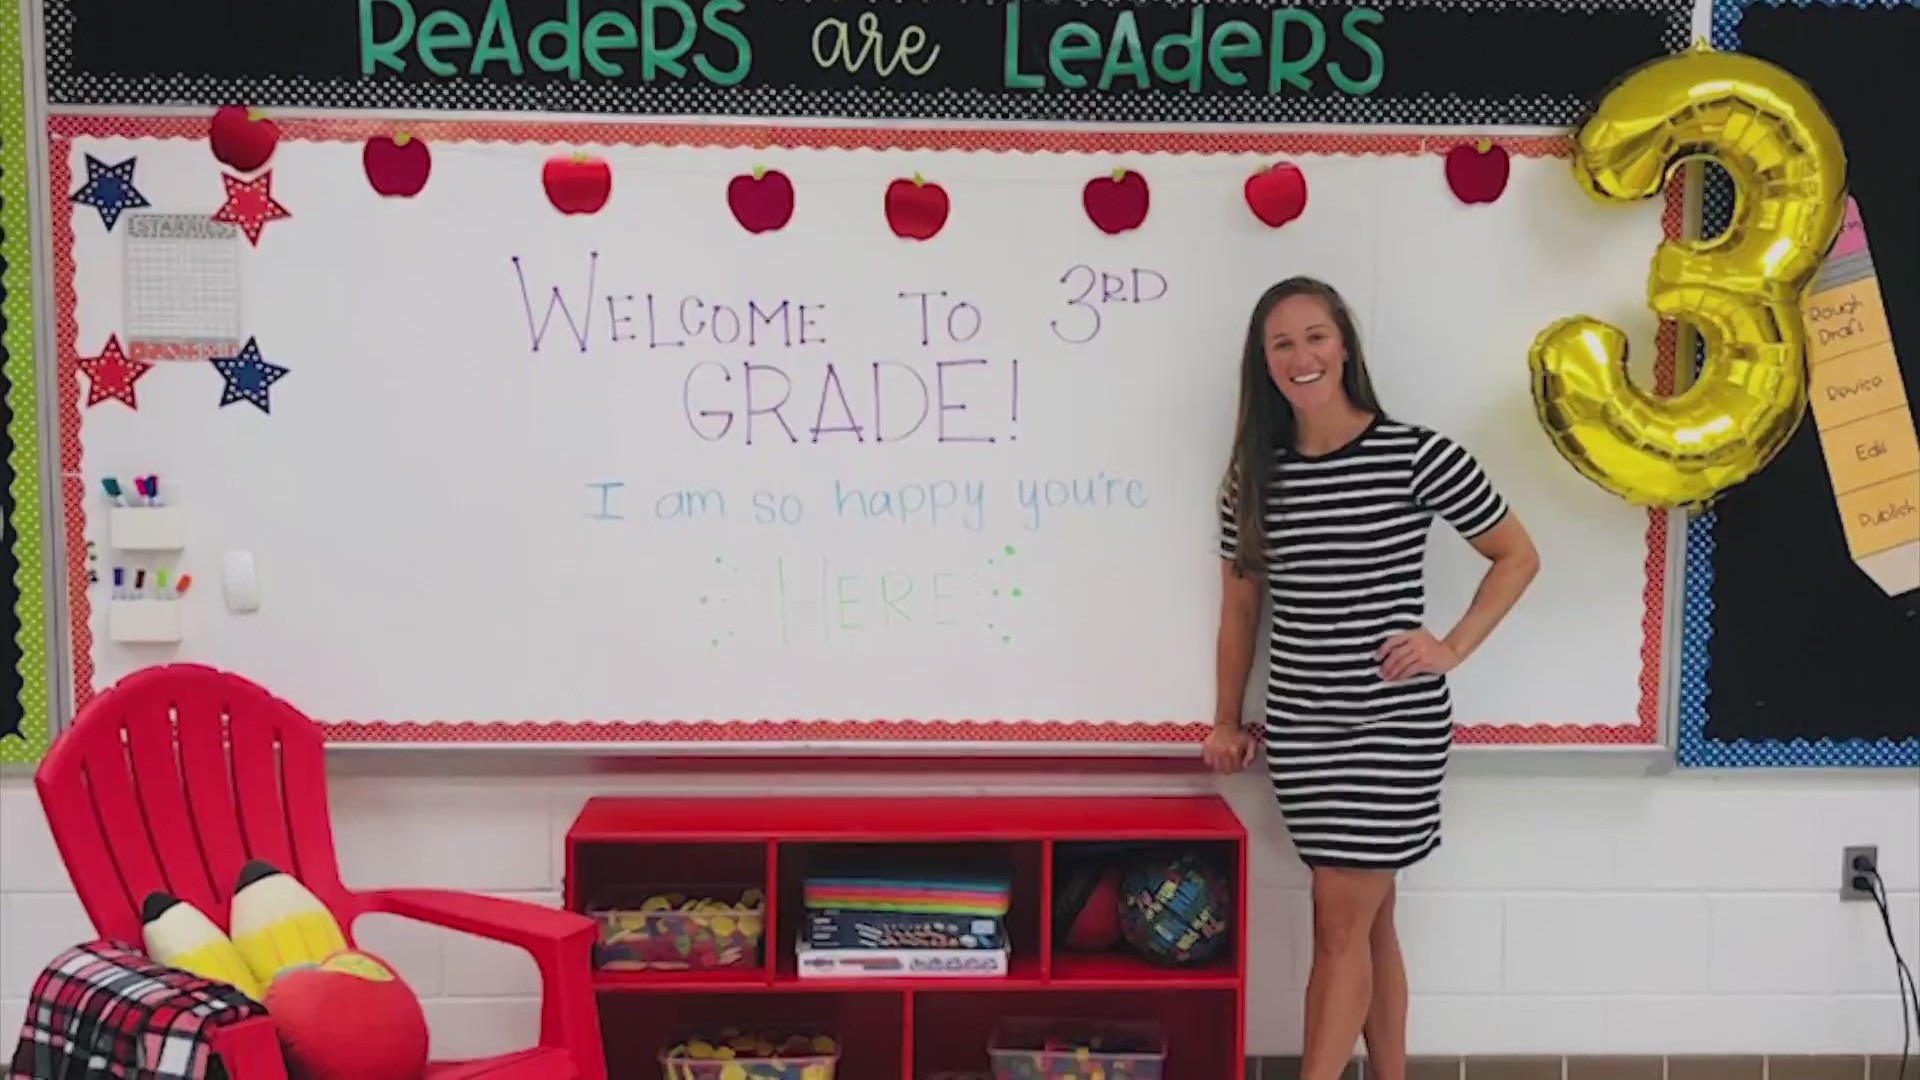 ReAdeRS are LeAdeRS
STARRIES
WELCOME TO 3RD
GRADE!
I am so happy you're
HERE
Rough
Draft
Revise
Edit
Publish